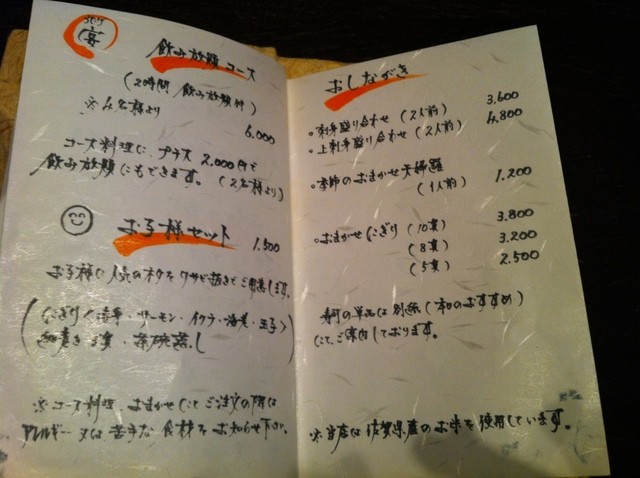 宴
飲み放題コース
(2時間 飲み放題付)
※4名様より
6.000
コース料理に プラス 2.000円で
飲み放題にもできます。(2名様より)
お子様セット
1.500
お子様に人気のネタを ワサビ抜きでご用意します。
にぎり<・サーモン・イクラ・海老・玉子>
細巻き ・茶碗蒸し
※コース料理 おまかせにて ご注文の際は
アレルギー又は 苦手な 食材を お知らせ下さい。
おしながき
・刺身盛り合わせ (2人前) 3.600
・上刺身盛り合わせ (2人前) 4.800
・季節のおまかせ天婦羅
(1人前) 1.200
・おまかせ にぎり (10貫) 3.800
(8貫) 3.200
(5貫) 2.500
寿司の単品は 別紙 (本日のおすすめ)
にて ご案内しております。
※当店は 佐賀県産の お米を 使用しています。